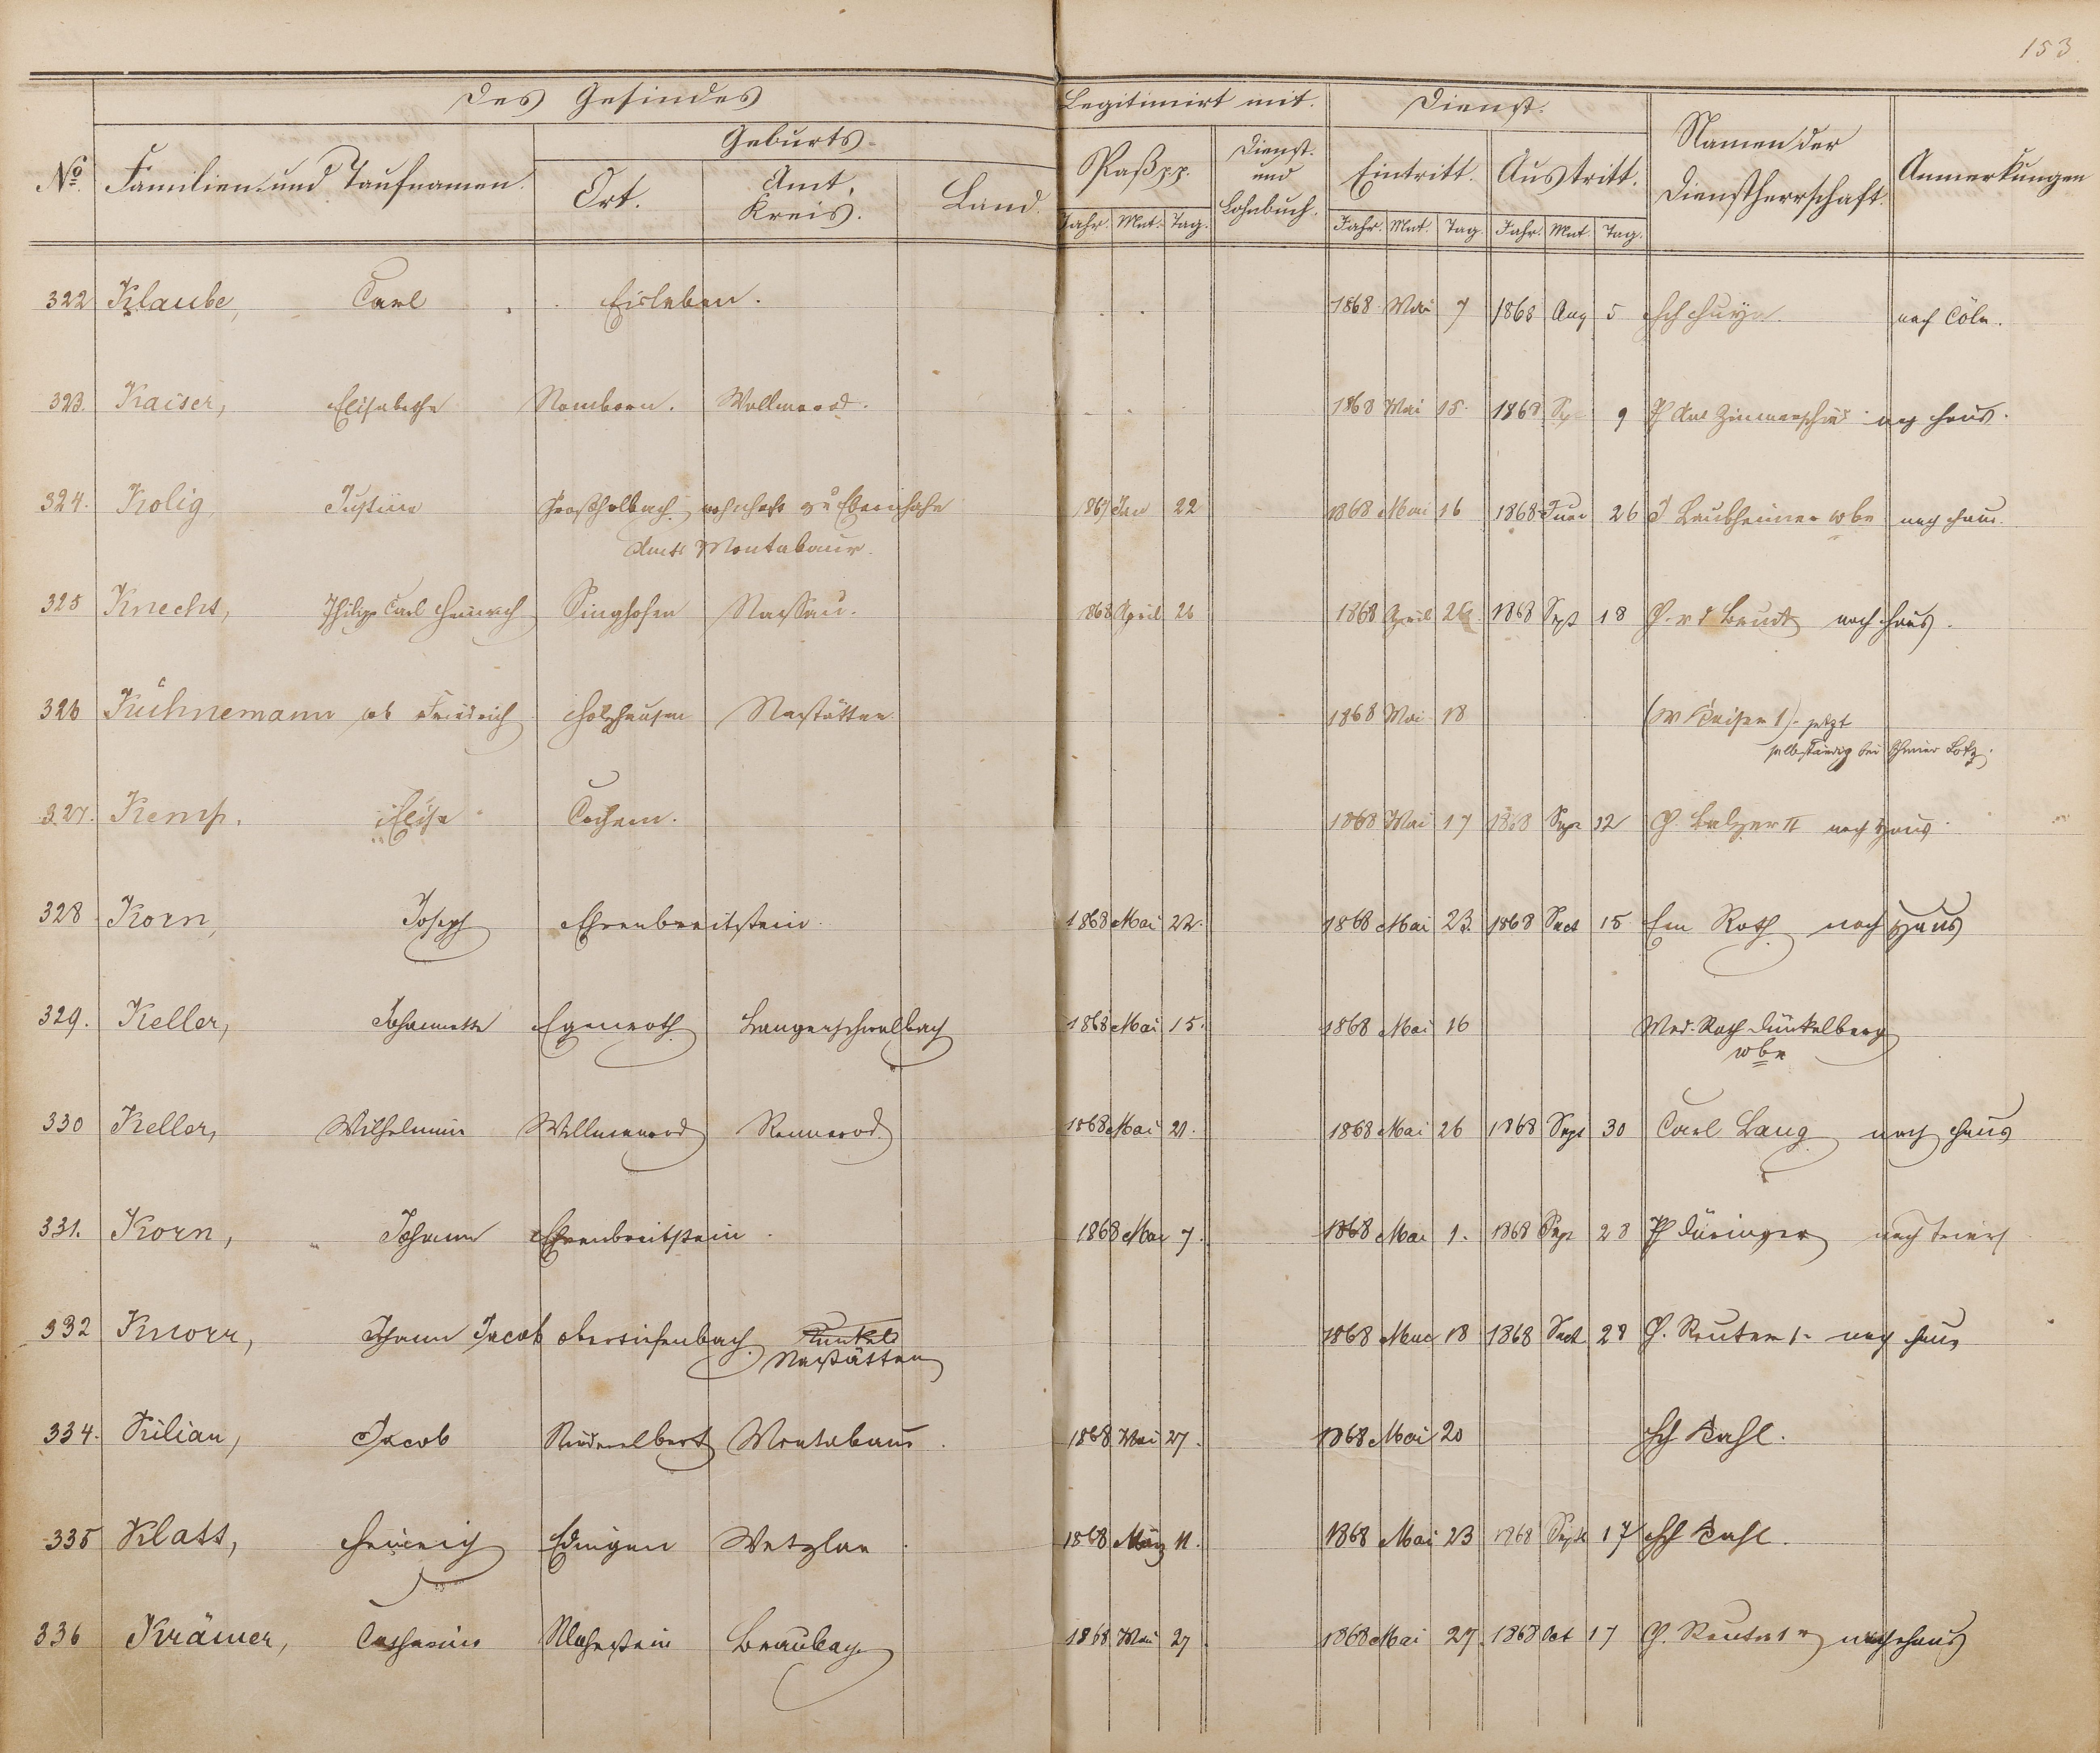 153
Des Gesindes
Legitimirt mit.
Dienst.
Geburts-
Namen der Dienstherrschaft.
Anmerkungen
No Familien- und Taufnamen. Ort. Amt, Kreis. Land.
Paß pp. Dienst- und Lohnbuch. Eintritt. Austritt.
Jahr. Mnt. Tag. Jahr. Mnt. Tag. Jahr. Mnt. Tag.
322 Klaube, Carl Eisleben. 1868 Mai 7 1868 Aug 5 nach Cöln.
323. Kaiser, Elisabetha Nomborn. Wallmerod. 1868 Mai 15. 1868 9 nach Haus.
324. Kolig, Justine Großholbach, wohnhaft zu Ebernhahn 1867 Jan 22 1868 Mai 16 1868 Juni 26 J Laubheimer wbe nach Haus.
Amts Montabaur.
325 Knecht, Philip Carl Heinrich Singhofen Nassau. 1868 April 26 1868 April 26. 1868 Sept 18 nach Haus.
326 Kühnemann Friedrich Holzhausen Nastätten 1868 Mai 18 jetzt
selbständig bei Lotz.
327. Kemp. Elise Cochem. 1868 Mai 17 1868 Sept 12 Balzer II nach Haus.
328 Korn, Joseph Ehrenbreitstein. 1868 Mai 22. 1868 Mai 23. 1868 Sept 15 Em Roth nach Haus
329. Keller, Johannette Egenroth Langenschwalbach 1868 Mai 15. 1868 Mai 16 Med. Rath Dünkelberg
wbe
330 Keller, Wilhelmine Willmenrod Rennerod 1868 Mai 21. 1868 Mai 26 1868 Sept 30 Carl Lang nach Haus
331. Korn, Johann Ehrenbreitstein. 1868 Mai 7. 1868 Mai 1. 1868 Sept 28 Ph Düringer nach Trier
332 Knorr, Johann Jacob Obertiefenbach Runkel 1868 Mai 18 1868 Sept 28 Reuter 1. nach Haus
Nastätten
334. Kilian, Jacob Niederelbert Montabaur. 1868 Mai 27. 1868 Mai 20 Kahl.
335 Klatt, Heinrich Edingen Wetzlar 1868 März 11. 1868 Mai 23 1868 Sept 17 Kahl.
336 Krämer, Catharine Niederlahnstein Braubach 1868 Mai 27 1868 Mai 27. 1868 Oct 17 nach Haus